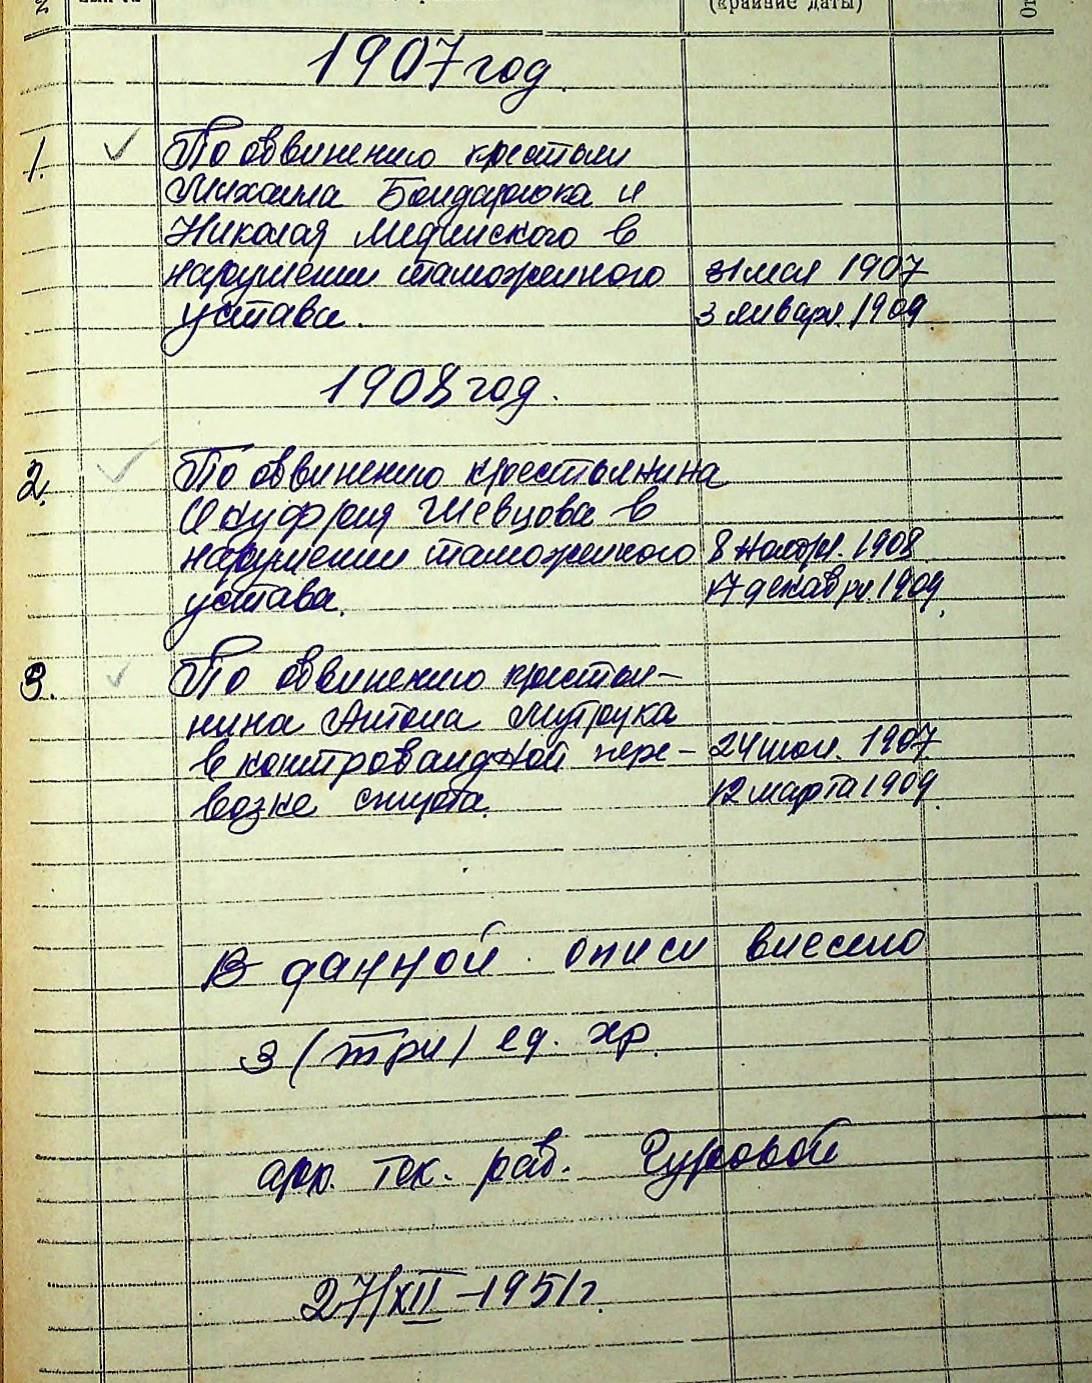 (крайние даты)
1907 год.
1. По обвинению крестьян
Михаила Бондарюка и
Николая Мединского в
нарушении таможенного 31 мая 1907
устава. 3 января. 1909.
1908 год.
2. По обвинению крестьянина
Онуфрия Шевцова в
нарушении таможенного 8 ноября. 1908
устава. 17 декабря. 1909.
3. По обвинению крестья-
нина Антона Мутрука
в контробандной пере- 24 1907.
возке спирта. 12 марта 1909.
В данной описи внесено
3 (три) ед. хр.
арх. тех. раб.
27/XII-1951г.